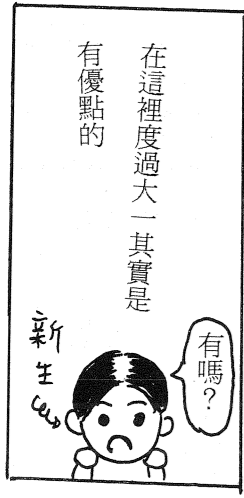 在這裡度過大一其實是
有優點的
有嗎？
新生